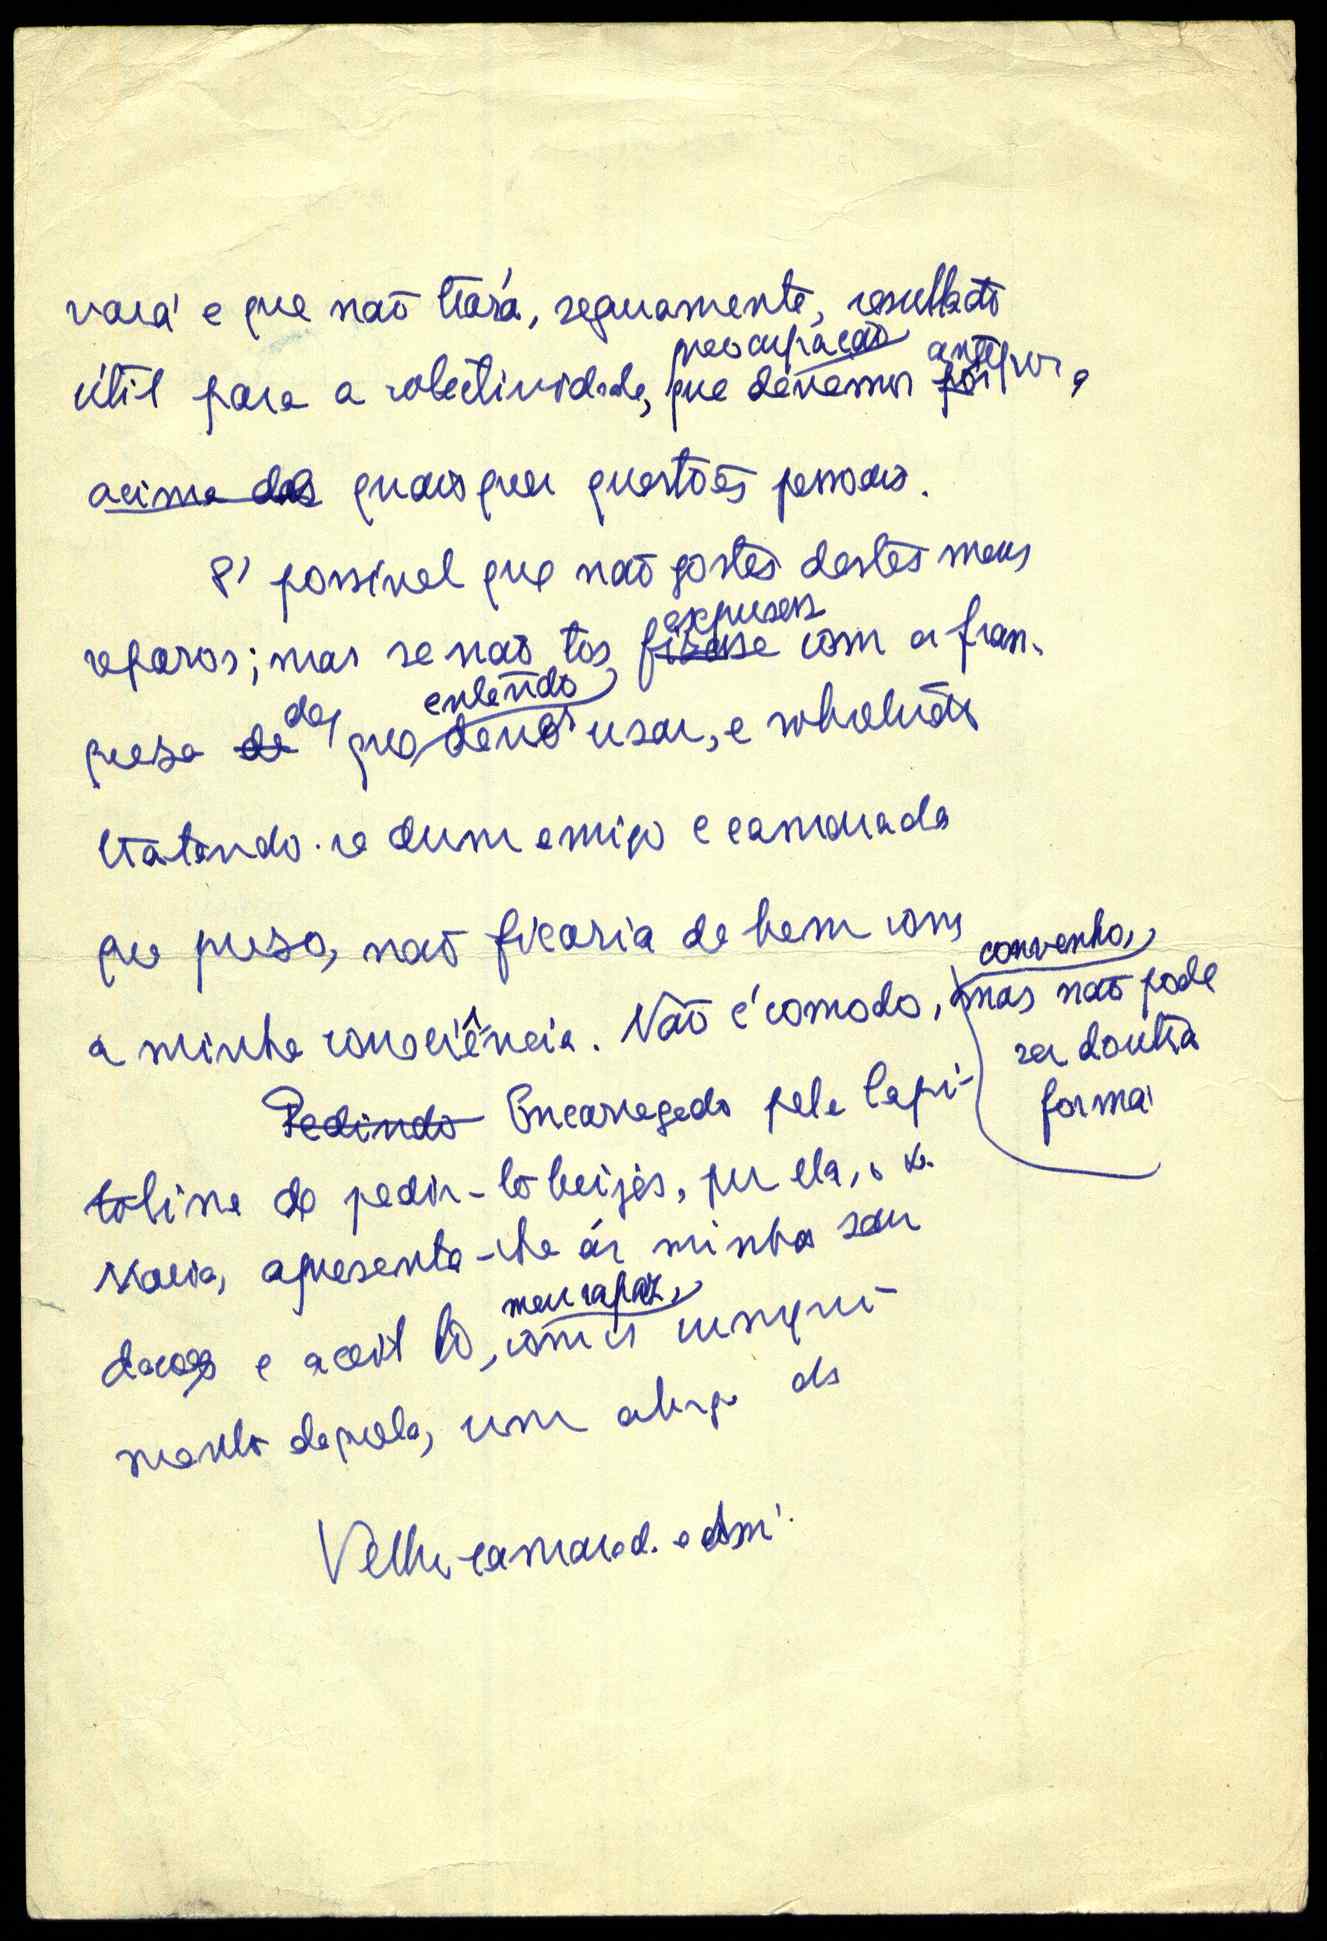 vará e que não trará, seguramente, resultado
preocupação
útil para a colectividade, que devemos pôr antepor, a
acima das quaisquer questões pessoais.
É possível que não gostes destes meus
expusesse
reparos; mas se não tos fizesse com a fran-
entendo
queza de da que devo usar, e sobretudo
tratando-se dum amigo e camarada
que prezo, não ficaria de bem com
a minha consciência. Não é cómodo, convenho, mas não pode
ser doutra
forma!
Pedindo Encarregado pela Capi-
tolina de pedir-te beijes, por ela, a
Maria, apresenta-lhe as minhas sau
meu rapaz,
dações e aceita, com os cumpri-
mentos daquela, um abraço do
Velho camarada e Am.